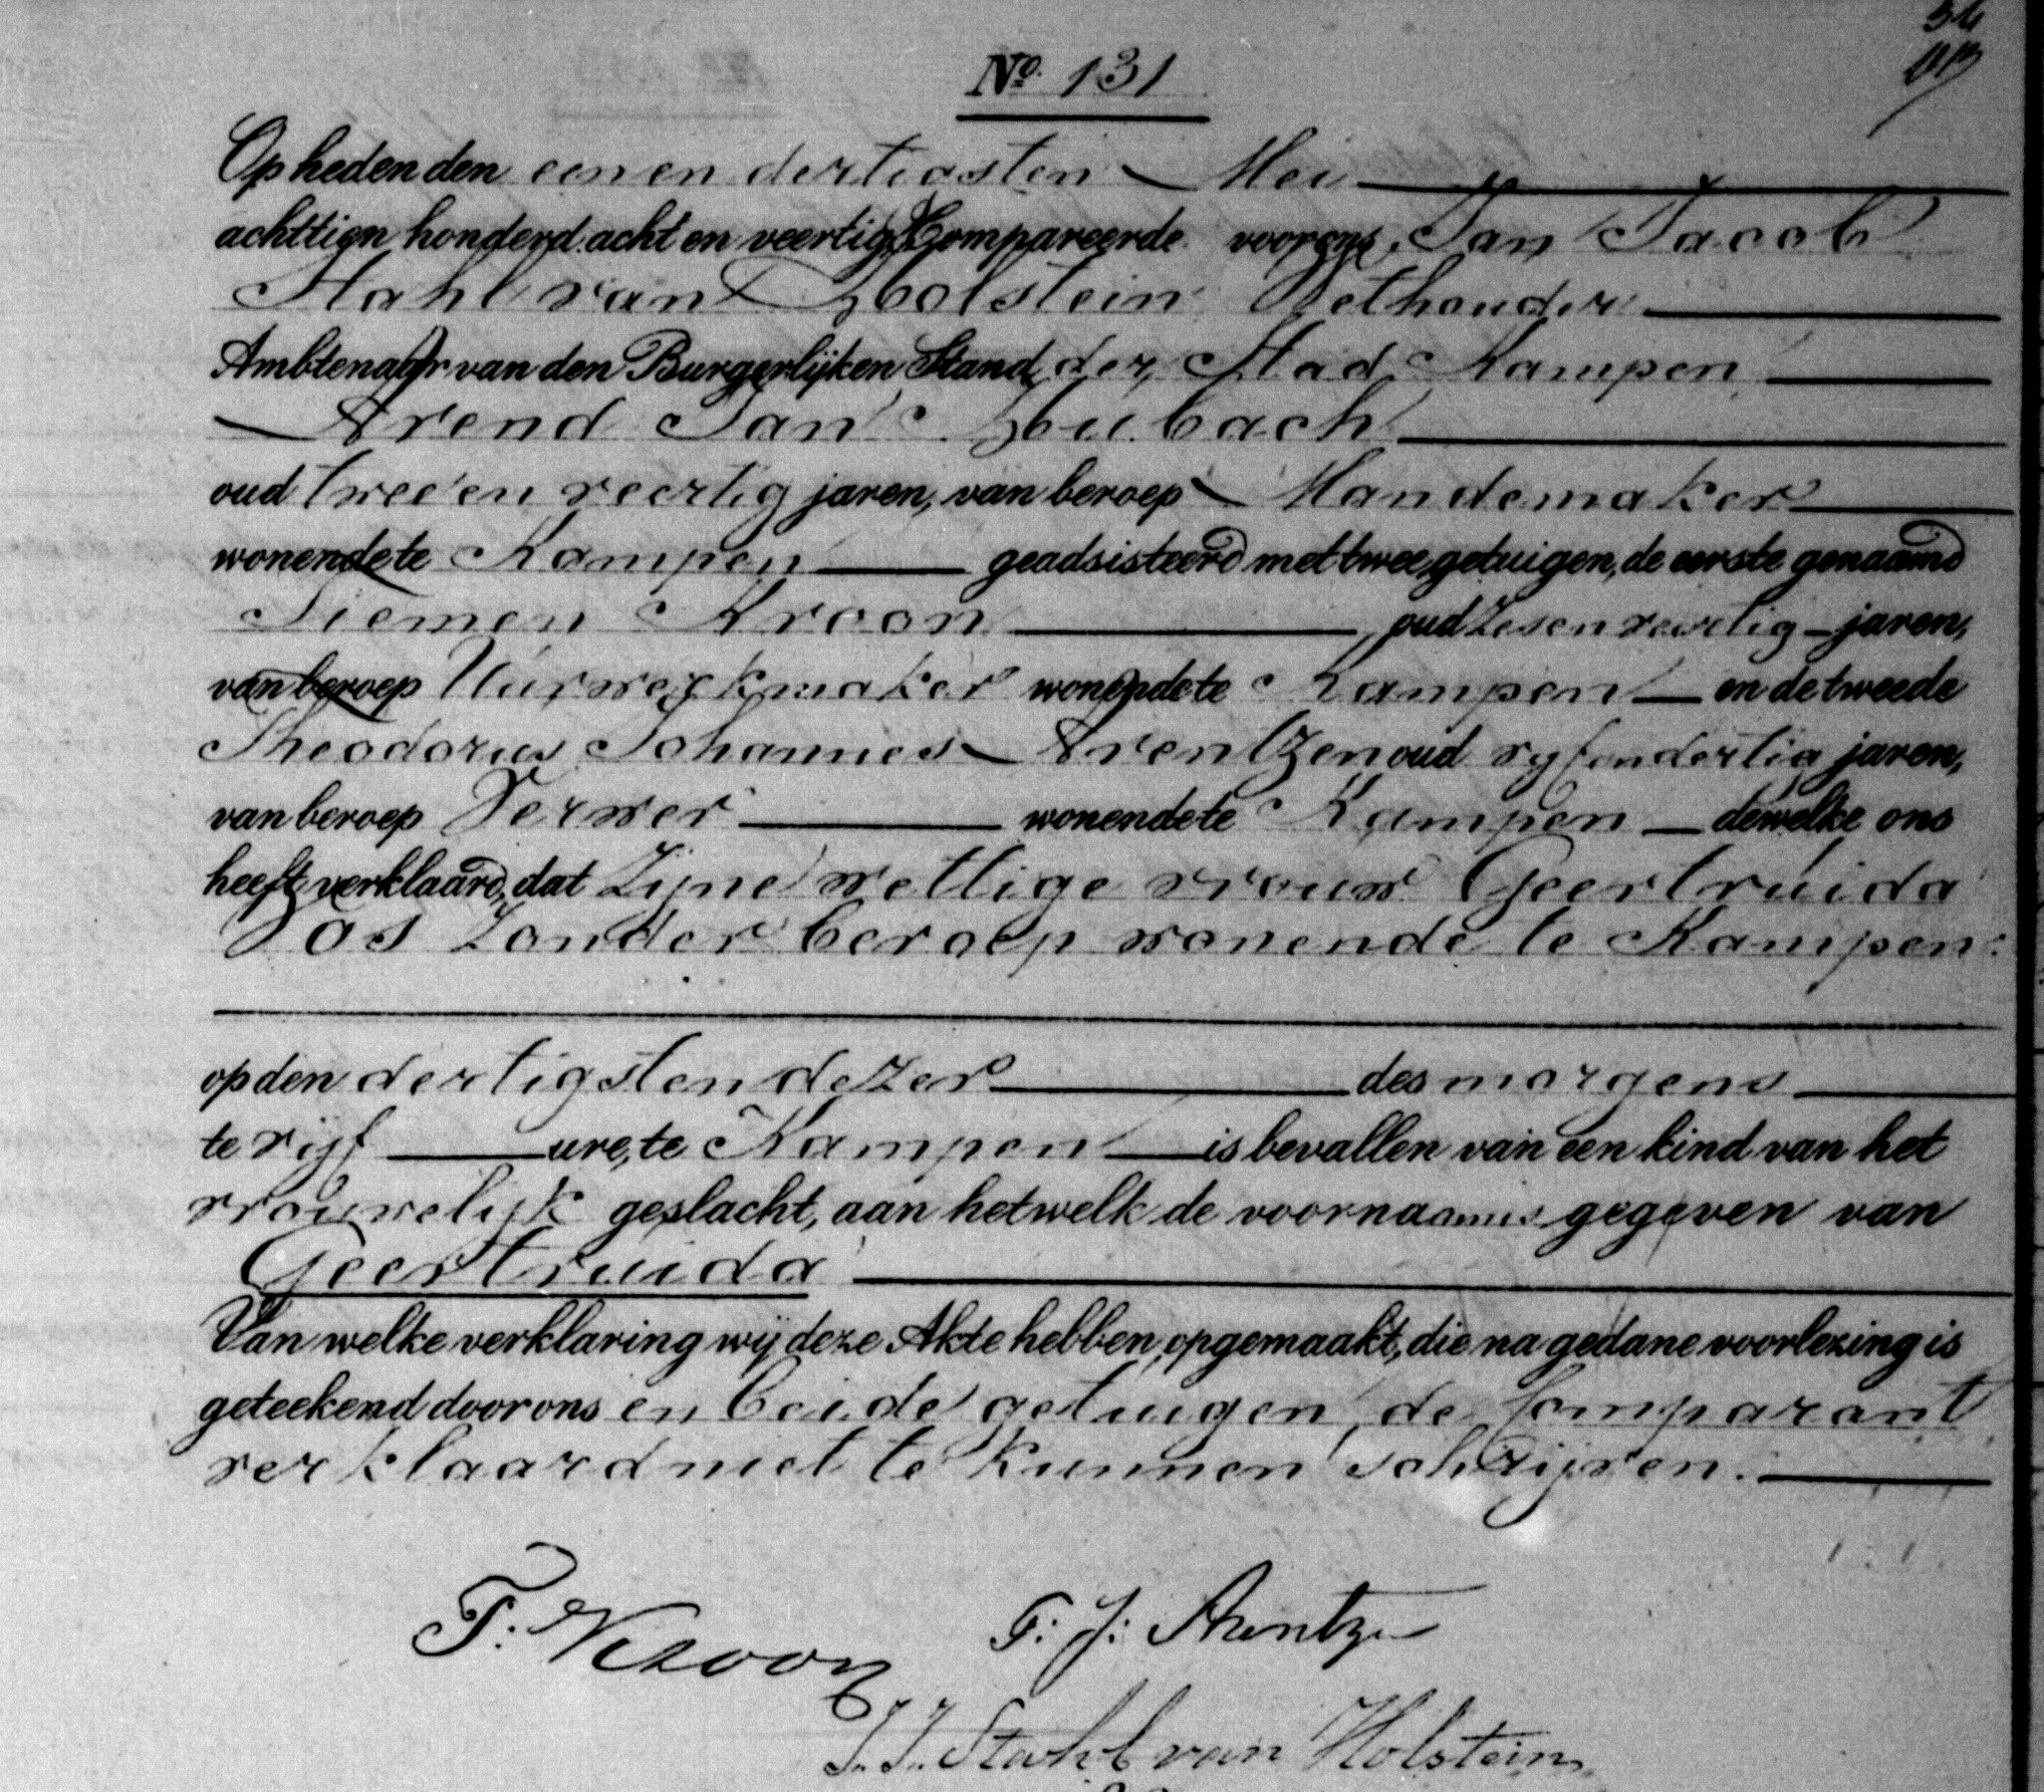 54
No. 131
Op heden den een en dertigsten Mei
achttien honderd acht en veertig, Compareerde voor ons, Jan Jacob
Stahl van Holstein Wethouder
Ambtenaar van den Burgerlijken Stand der Stad Kampen
Arend Jan Hubach
oud twee en veertig jaren, van beroep Mandemaker
wonende te Kampen geadsisteerd met twee getuigen, de eerste genaamd
Tiemen Kroon oud zes en veertig jaren,
van beroep Uurwerkmaker wonende te Kampen en de tweede
Theodorus Johannes Arentzen oud vyf en dertig jaren,
van beroep Verwer wonende te Kampen dewelke ons
heeft verklaard, dat Zijne wettige vrouw Geertruida
Vos Zonder beroep wonende te Kampen
op den dertigsten dezer des morgens
te vijf ure, te Kampen is bevallen van een kind van het
vrouwelijk geslacht, aan hetwelk de voornaam is gegeven van
Geertruida
Van welke verklaring wij deze Akte hebben opgemaakt, die na gedane voorlezing is
geteekend door ons en beide getuigen, de Comparant
verklaard niet te kunnen schrijven.
T. Kroon T: J: Arentzen
J. J. Stahl van Holstein